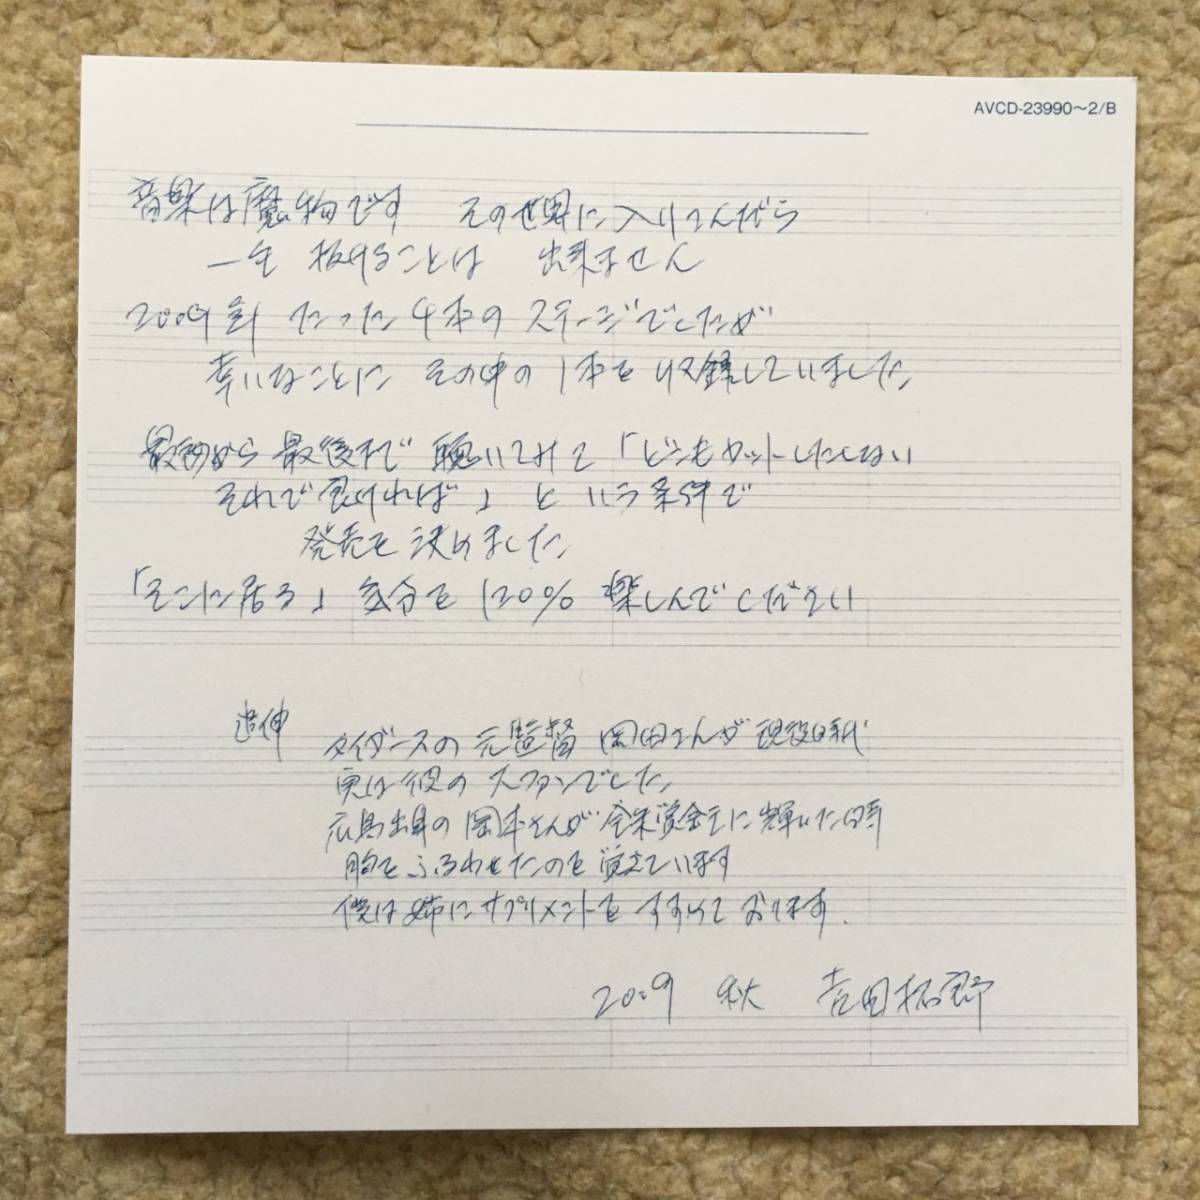 AVCD-23990〜2/B
音楽は魔物です その世界に入りこんだら
一生 抜けることは 出来ません
2009年 たった4本の ステージでしたが
幸いなことに その中の1本を収録していました
最初から最後まで 聴いてみて「どこもカットしたくない
それで良ければ」という条件で
発売を決めました
「そこに居る」気分を120% 楽しんでください
追伸
タイガースの元監督 岡田さんが現役時代
実は彼の大ファンでした
広島出身の岡本さんが全米賞金王に輝いた時
胸をふるわせたのを覚えています
僕は姉にサプリメントをすすめております.
2009 秋 吉田拓郎